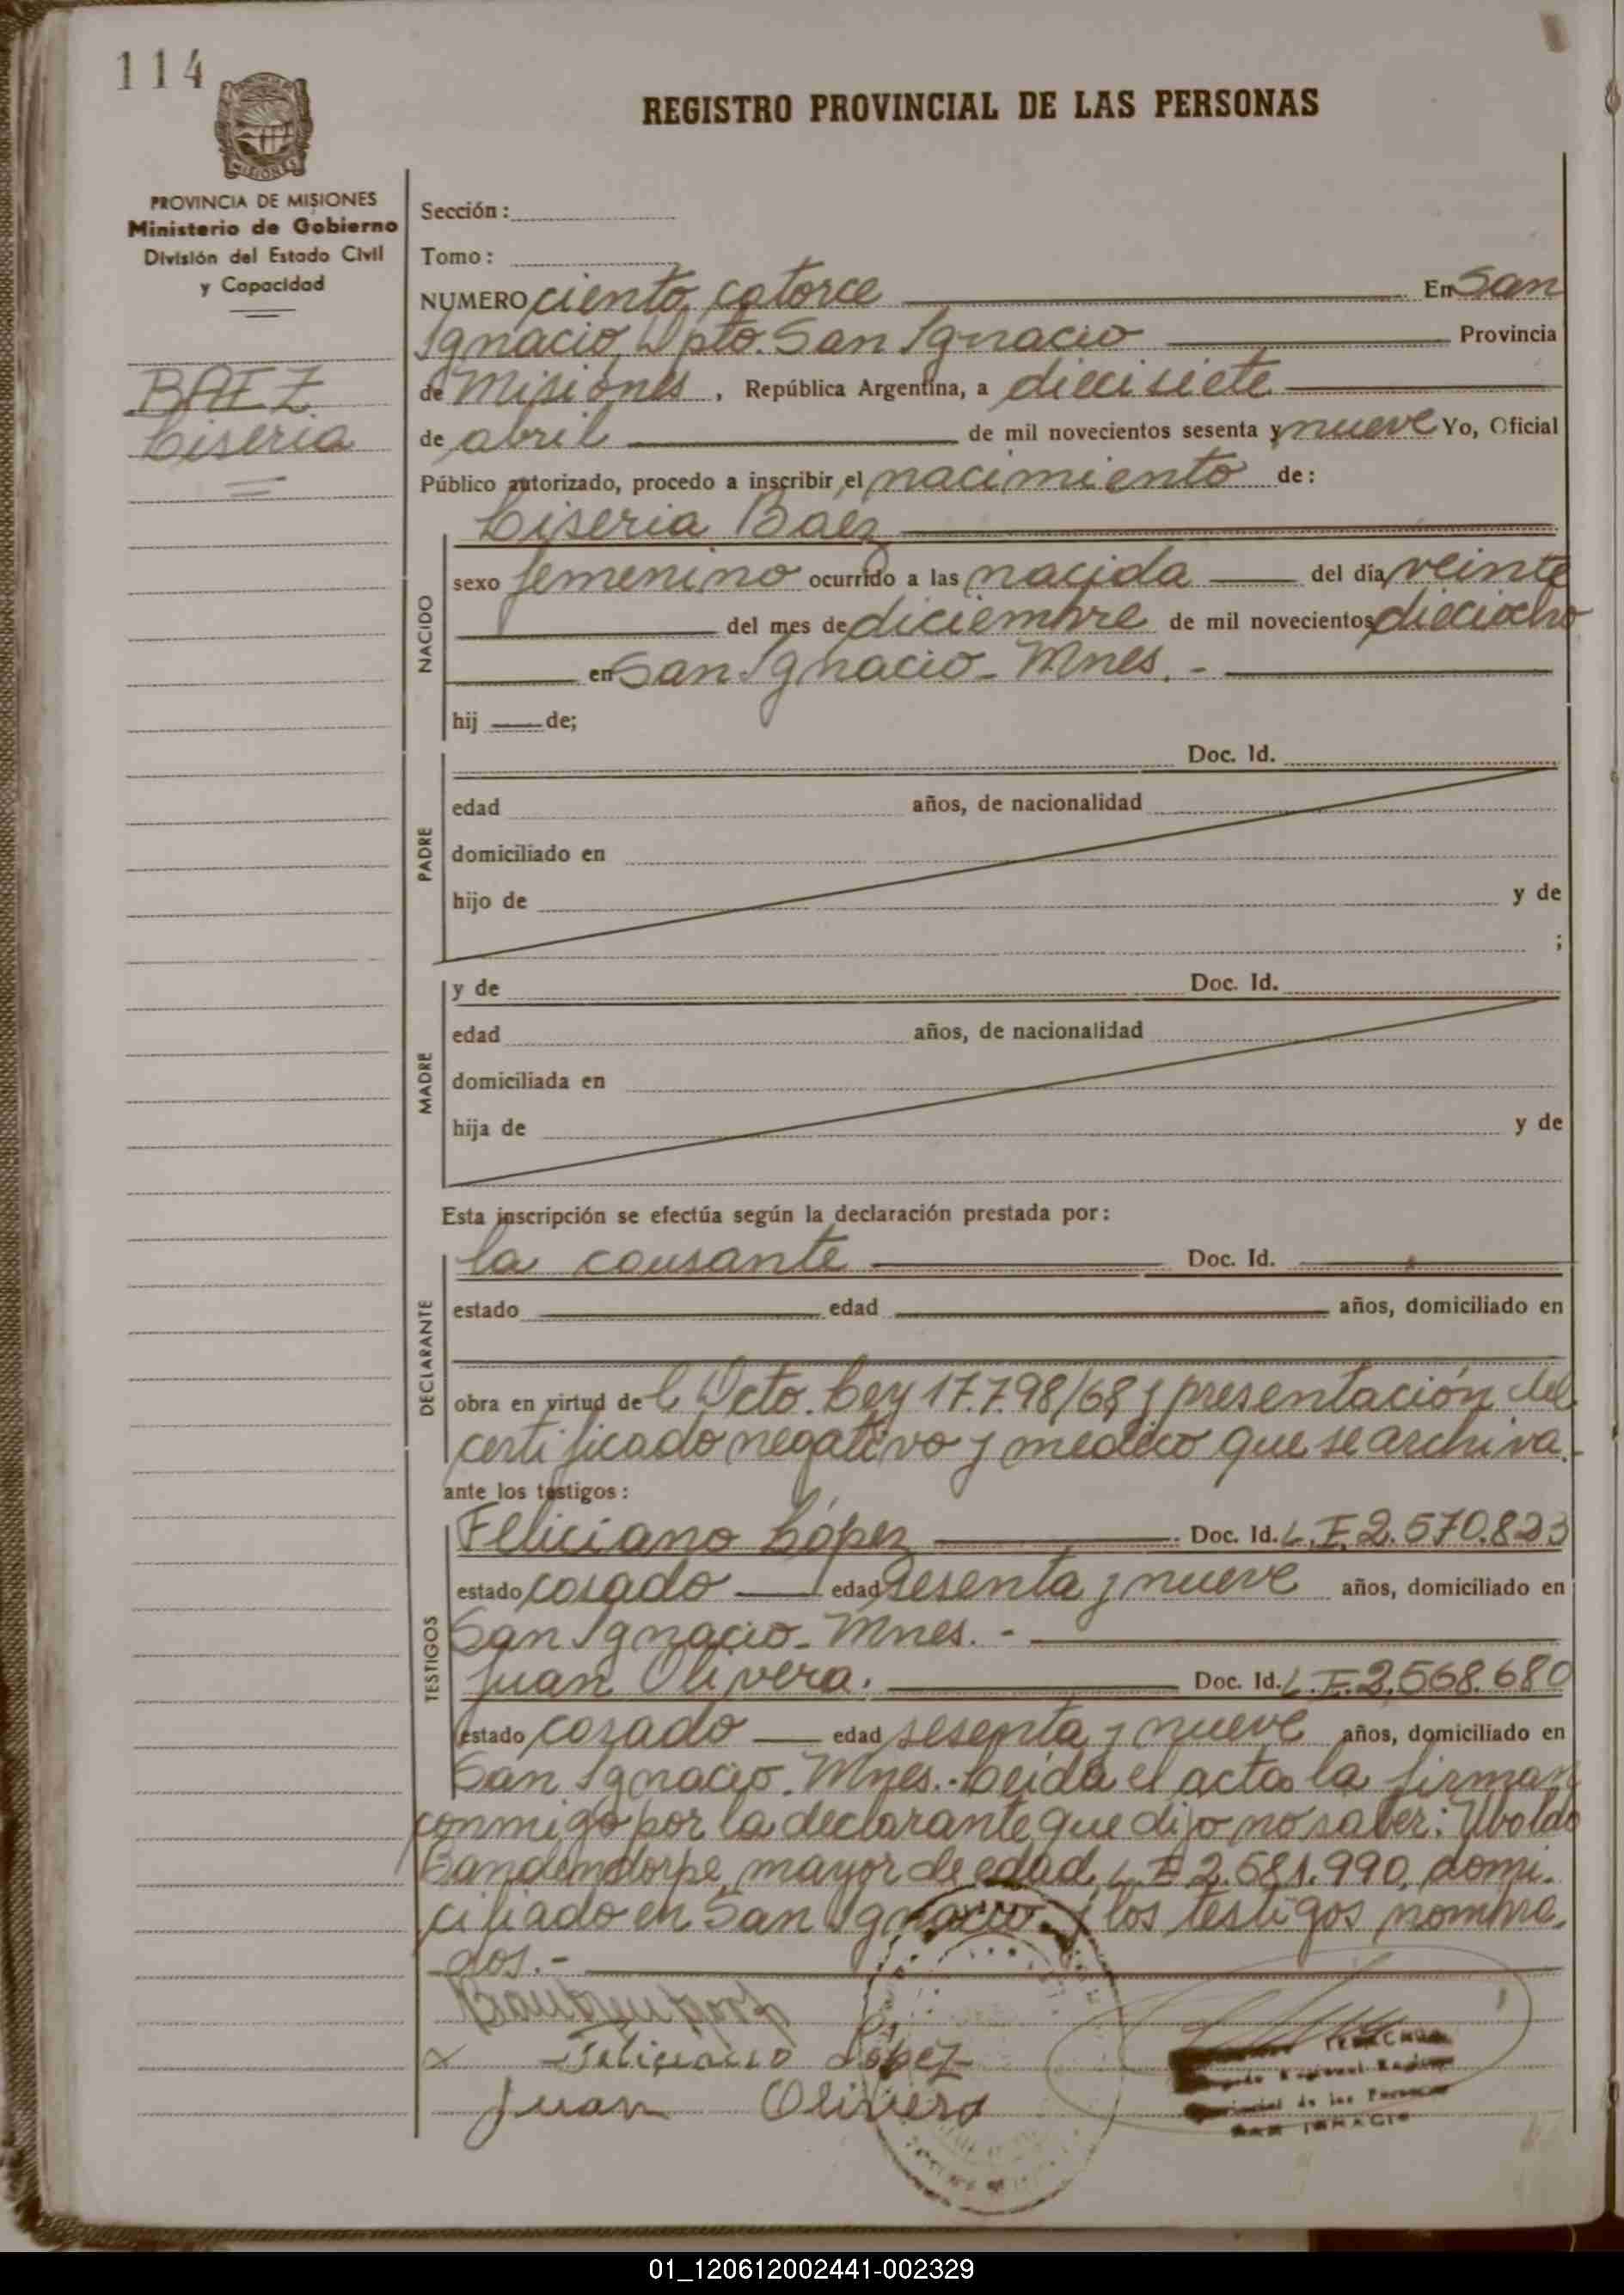 114
REGISTRO PROVINCIAL DE LAS PERSONAS
MISIONES
PROVINCIA DE MISIONES
Ministerio de Gobierno
División del Estado Civil
y Capacidad
BAEZ
Liseria
Sección:
Tomo:
NUMERO ciento catorce En San
Ignacio, Dpto. San Ignacio Provincia
de Misiones, República Argentina, a diecisiete
de abril de mil novecientos sesenta y nueve Yo, Oficial
Público autorizado, procedo a inscribir el nacimiento de:
Liseria Baez
NACIDO
sexo femenino ocurrido a las nacida del día veinte
del mes de diciembre de mil novecientos dieciocho
en San Ignacio - Mnes. -
hij de;
PADRE
Doc. Id.
edad años, de nacionalidad
domiciliado en
hijo de y de
;
MADRE
y de Doc. Id.
edad años, de nacionalidad
domiciliada en
hija de y de
Esta inscripción se efectúa según la declaración prestada por:
DECLARANTE
la causante Doc. Id.
estado edad años, domiciliado en
obra en virtud de l Dcto. Ley 17.798/68 y presentación del
certificado negativo y médico que se archiva.
ante los testigos:
TESTIGOS
Feliciano López Doc. Id. L.E. 2.570.823
estado casado edad sesenta y nueve años, domiciliado en
San Ignacio - Mnes. -
Juan Olivera. Doc. Id. L.E. 2.568.680
estado casado edad sesenta y nueve años, domiciliado en
San Ignacio. Mnes.- Leída el acta la firman
conmigo por la declarante que dijo no saber: Ubaldo
Bandendorpe, mayor de edad, L.E 2.581.990, domi-
ciliado en San Ignacio y los testigos nombra
dos.-
Feliciano López
Juan Olivera
de las Personas
SAN IGNACIO
01_120612002441-002329